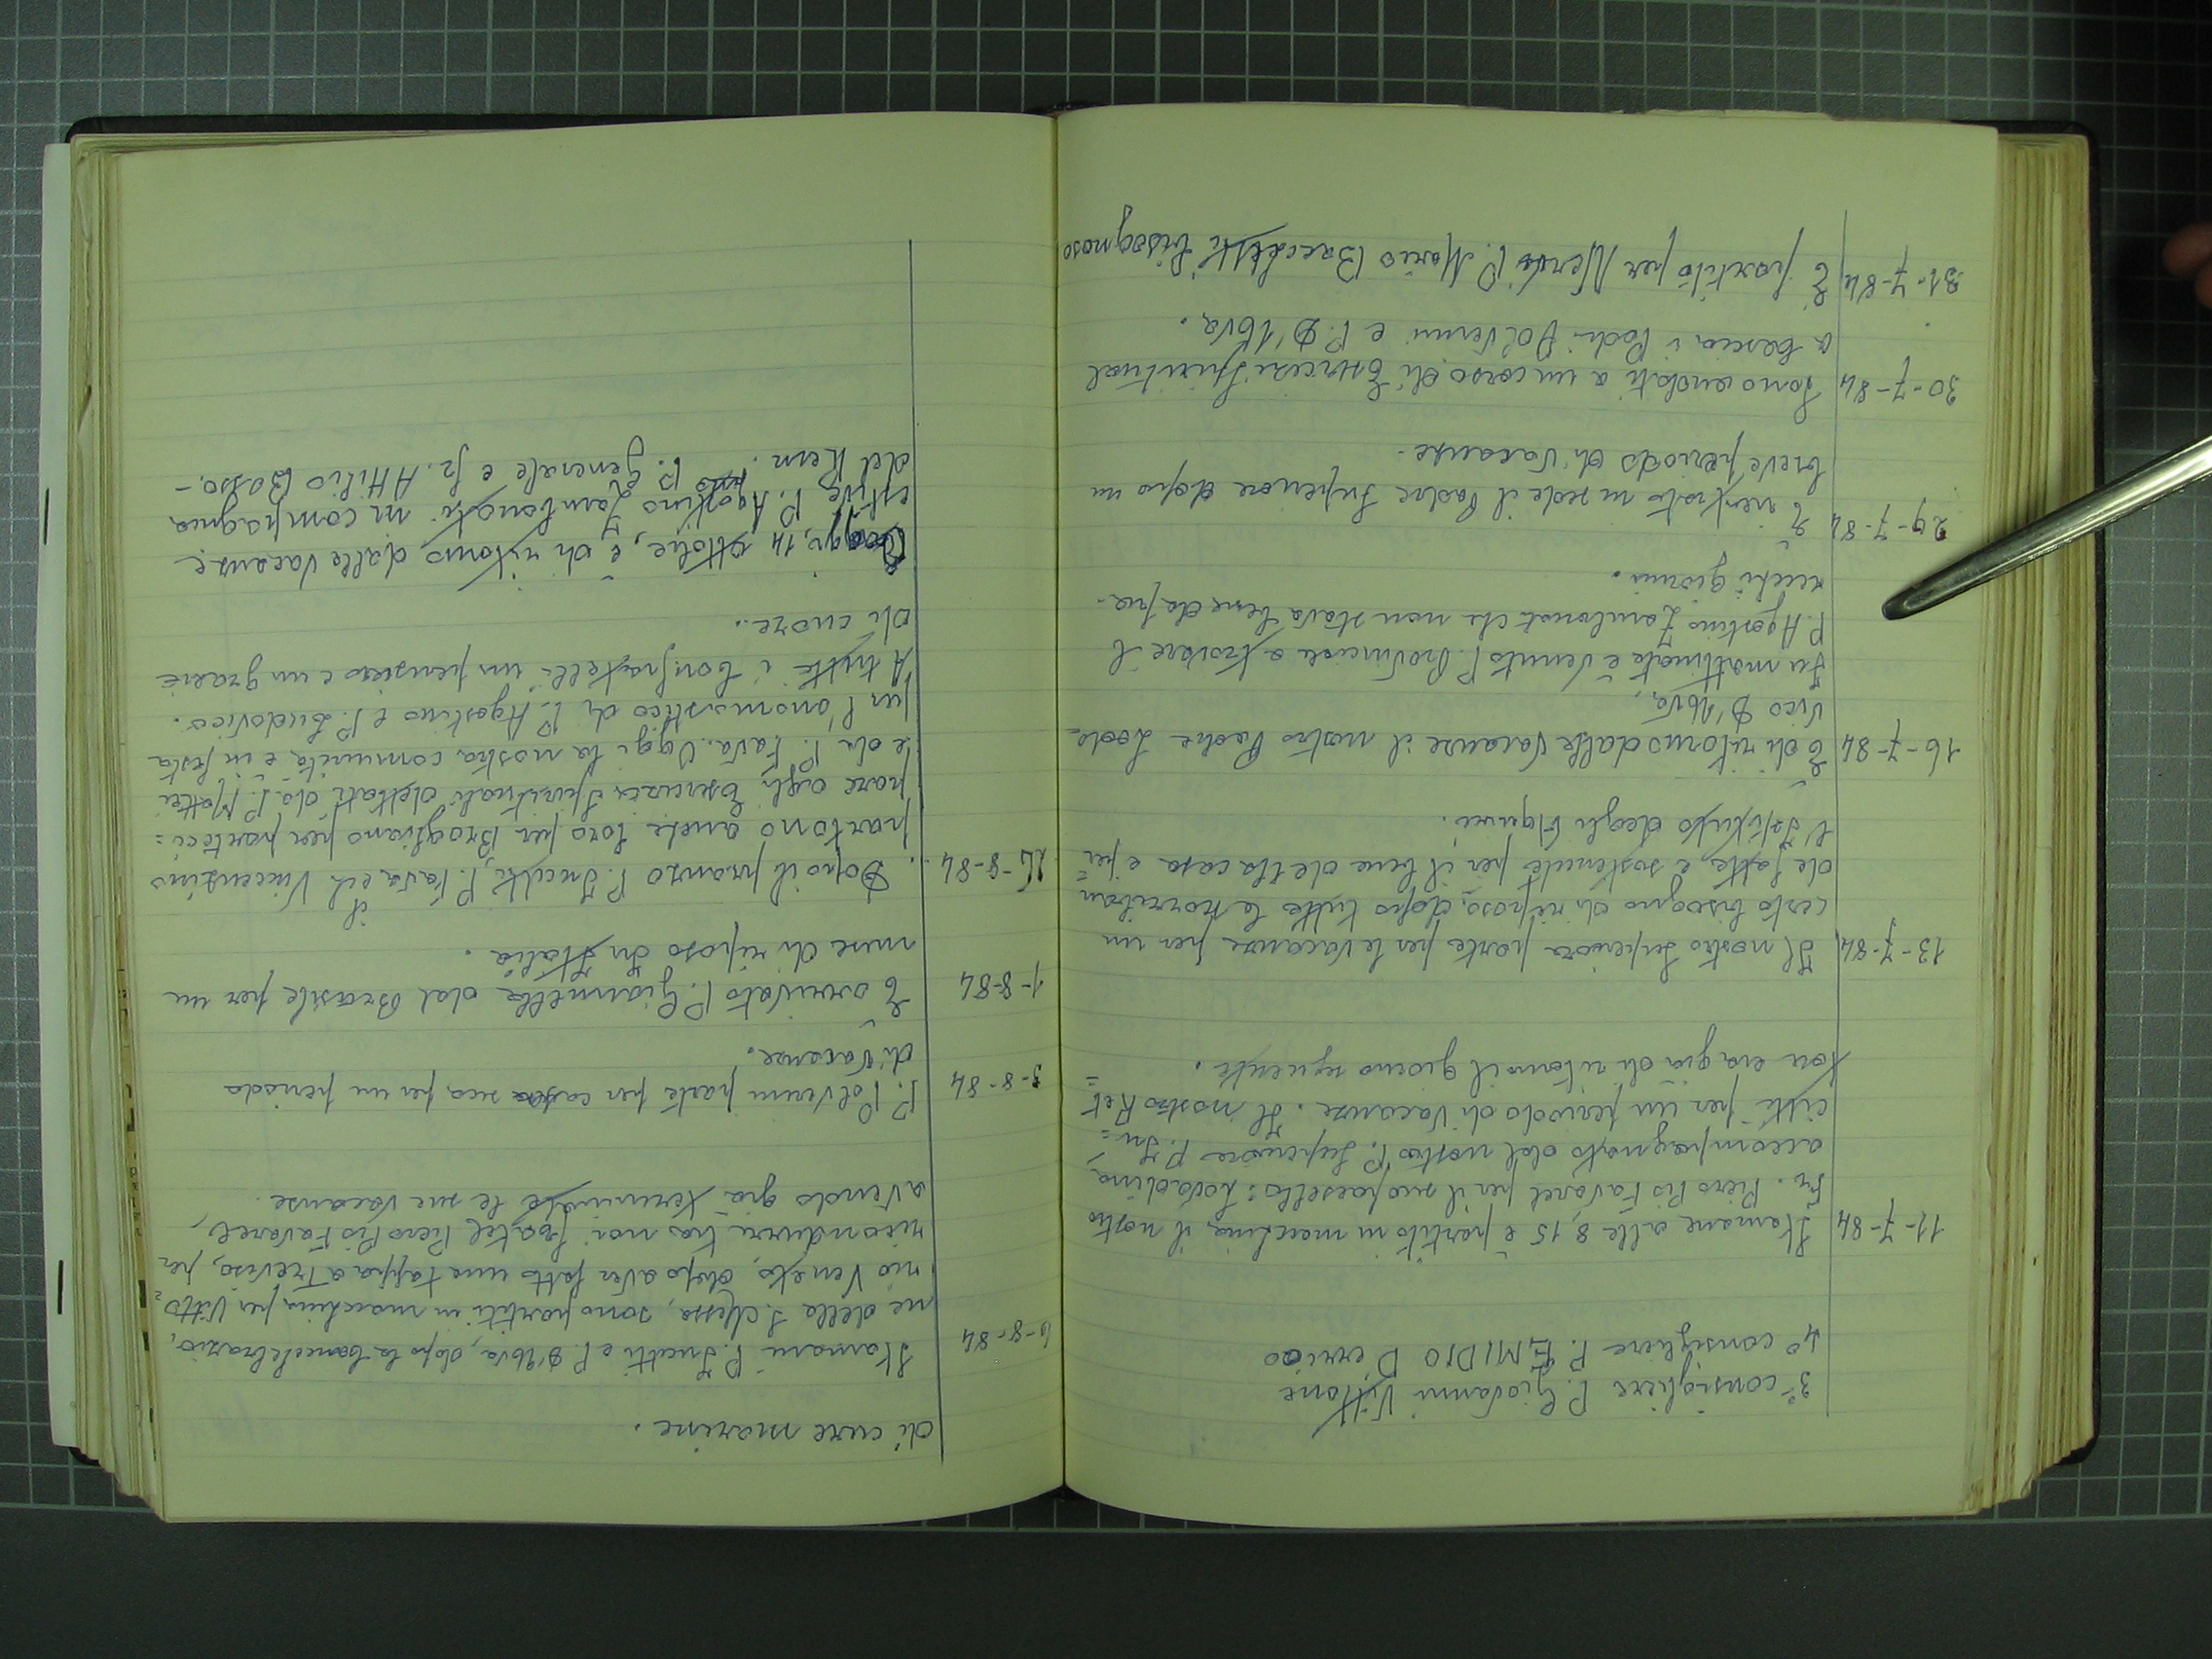 3° consigliere P. Giovanni Vittone
4° consigliere P. EMIDIO Derrico
11-7-84 Stamane alle 8,15 è partito in macchina il nostro
Fr. Piero Pio Favarel per il suo paesello:
accompagnato dal nostro P. Superiore P. In=
citti per un periodo di vacanze. Il nostro Ret=
tore era già di ritorno il giorno seguente.
13-7-84 Il nostro Superiore parte per le vacanze per un
certo bisogno di riposo, dopo tutte le
de fatte, e sostenute per il bene della casa e per
l'Istituto degli
16-7-84 È di ritorno dalle vacanze il nostro Padre Lodo-
vico D'Alva,
In mattinata è venuto P. Provinciale a trovare il
P. Agostino Zambonati che non stava bene da pa-
recchi giorni.
29-7-84 È rientrato in sede il Padre Superiore dopo un
breve periodo di vacanze.
30-7-84 Sono andati a un corso di Esercizi Spirituali
a Cascia i Padri Polverini e P. D'Alva.
31-7-84 È partito per P. Mario Bacchetti bisognoso
di cure marine.
6-8-84 Stamani P. Incitti e P. D'Alva, dopo la Concelebrazio,
ne della S. Messa, sono partiti in macchina per Vitto=
rio Veneto, dopo aver fatto una tappa a Treviso, per
ricondurre tra noi fratel Piero Pio Favarel,
avendo già terminato le sue vacanze.
3-8-84 P. Polverini parte per casa sua per un periodo
di vacanze.
1-8-84 È arrivato P. Giannella dal Brasile per un
mese di riposo in Italia.
Dopo il pranzo P. Incitti, P. Favà ed il Vincenzino
partono anche loro per Brogliano per parteci=
pare agli Esercizi Spirituali dettati da P. Mattei
e da P. Favà. Oggi la nostra comunità è in festa
per l'onomastico di P. Agostino e P. Ludovico.
A tutti i Confratelli un pensiero e un grazie
di cuore..
Oggi, 14 ottobre, è di ritorno dalle vacanze
estive P. Agostino Zambonati in compagnia
del Rem. P. Generale e fr. Attilio Basso.-